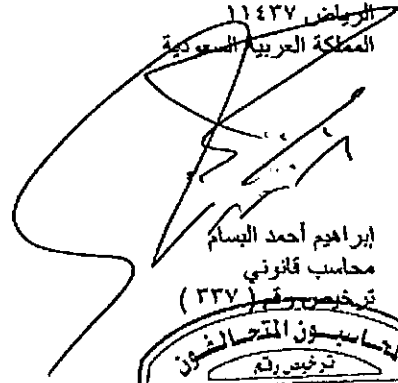 الرياض ١١٤٣٧
المملكة العربية السعودية
إبراهيم أحمد البسام
محاسب قانوني
ترخيص رقم ( ٣٣٧ )
المحاسبون المتحالفون
ترخيص رقم